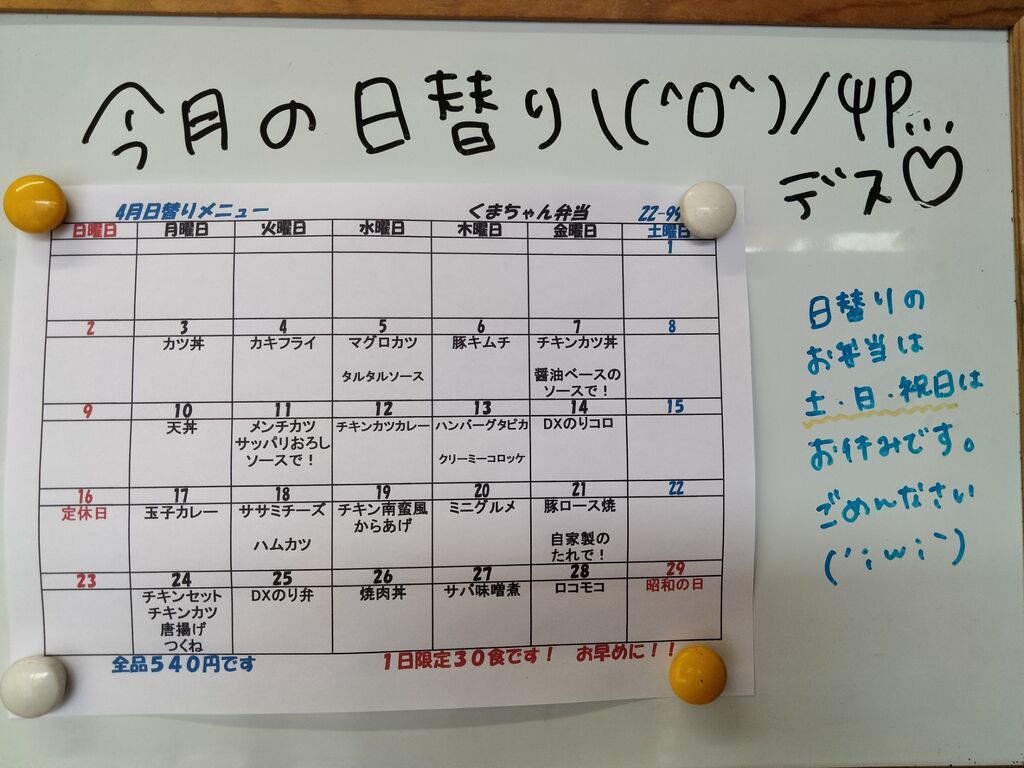 今月の日替り\(^O^)/ΨP...
デス♡
4月日替りメニュー くまちゃん弁当 22-99
日曜日 月曜日 火曜日 水曜日 木曜日 金曜日 土曜日
1
2 3 4 5 6 7 8
カツ丼 カキフライ マグロカツ 豚キムチ チキンカツ丼
タルタルソース 醤油ベースの
ソースで！
9 10 11 12 13 14 15
天丼 メンチカツ チキンカツカレー ハンバーグタピカ DXのりコロ
サッパリおろし
ソースで！ クリーミーコロッケ
16 17 18 19 20 21 22
定休日 玉子カレー ササミチーズ チキン南蛮風 ミニグルメ 豚ロース焼
からあげ
ハムカツ 自家製の
たれで！
23 24 25 26 27 28 29
チキンセット DXのり弁 焼肉丼 サバ味噌煮 ロコモコ 昭和の日
チキンカツ
唐揚げ
つくね
全品５４０円です １日限定３０食です！ お早めに！！
日替りの
お弁当は
土・日・祝日は
お休みです。
ごめんなさい
(´；ω；`)